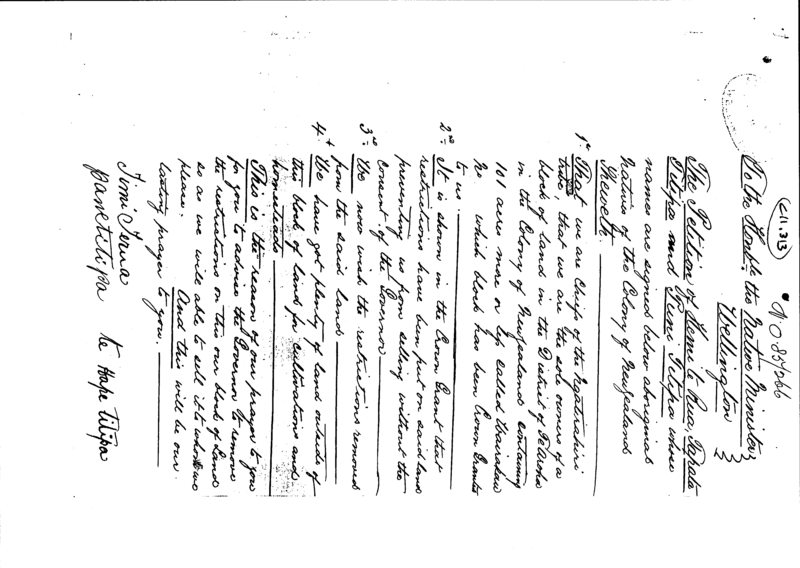 (C11.313)
N O 85/266
To the Honble the Native Minister
Wellington
The Petition of Hemi te Rua Papata
Titipa and Pene Titipa whose
names are signed below aboriginal
Natives of the Colony of Newzealand
Sheweth.
1st That we are chiefs of the
tribe, that we are the sole owners of a
block of land in the District of
in the Colony of Newzealand containing
101 acres more or less called Wairakau
No. which block has been Crown Granted
to us.
2nd It is shown in the Crown Grant that
restrictions have been put on said land
preventing us from selling without the
consent of the Governor
3rd We now wish the restrictions removed
from the said land
4th We have got plenty of land outside of
this block of land for cultivations and
homesteads
This is the reason of our prayer to you
for you to advise the Governor to remove
the restrictions on this our block of land
so as we will able to sell it to whom we
please. And this will be our
lasting prayer to you.
Timi Terua
panetitipa te Hape titipa